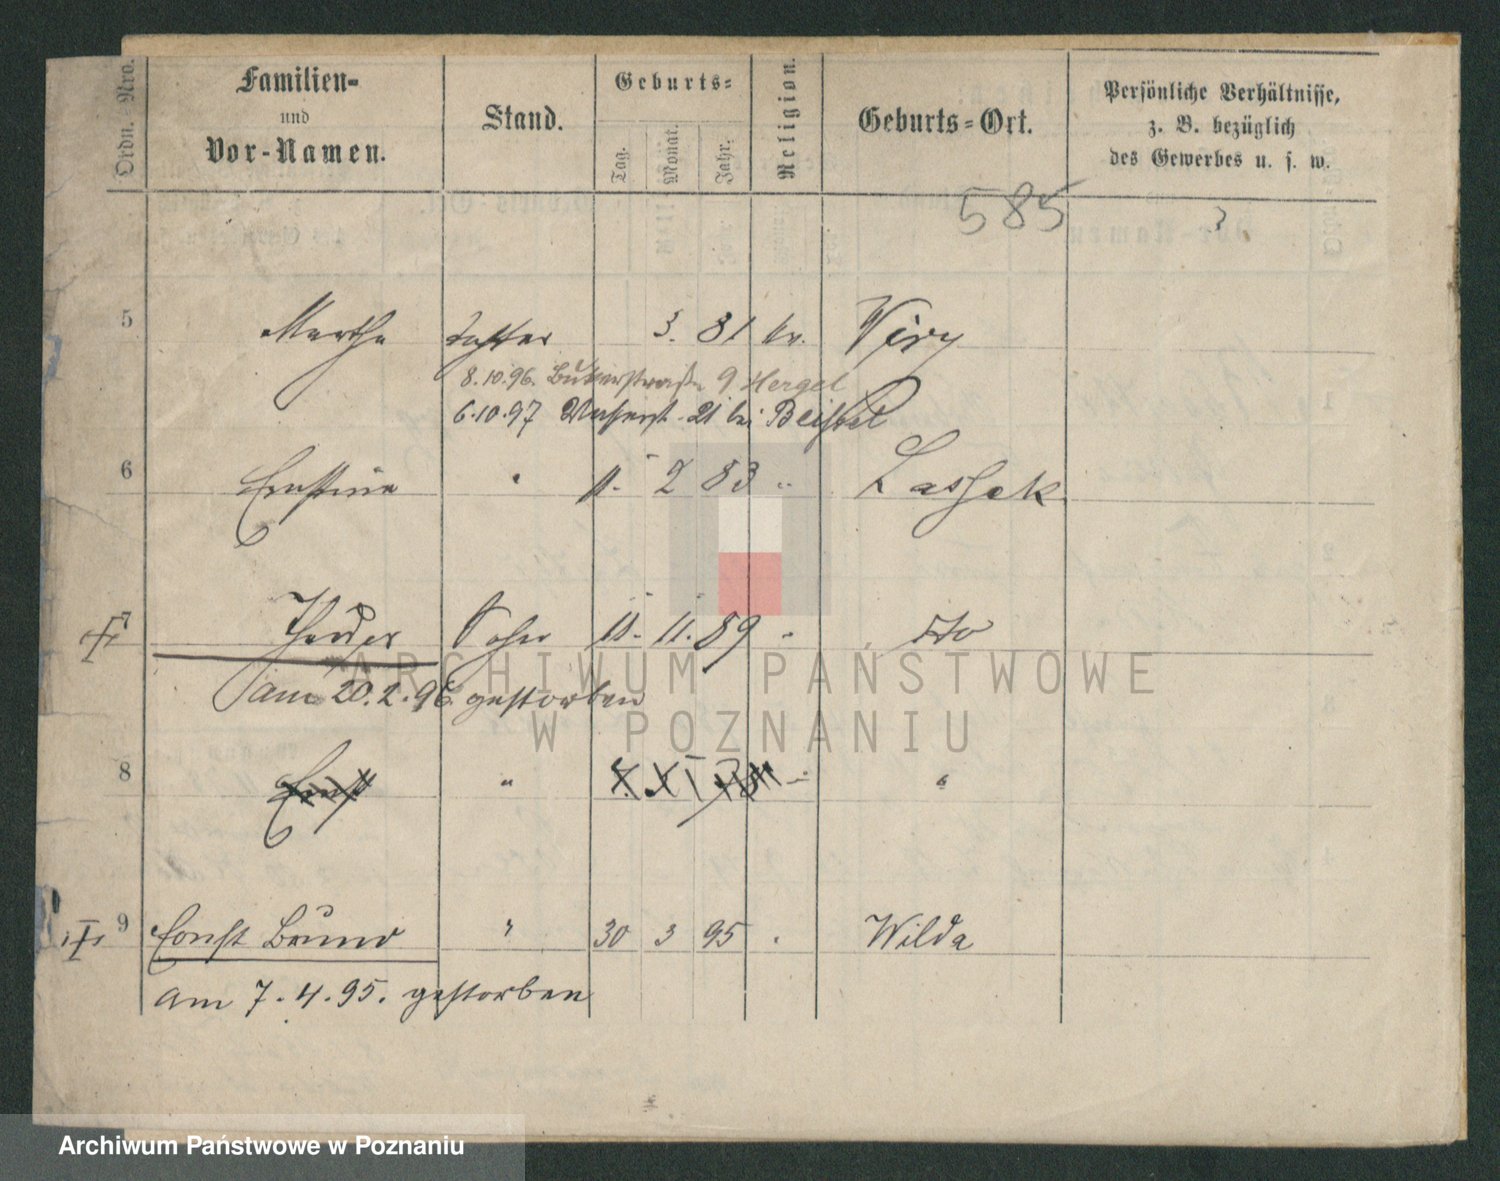 Ordn.-Nro. Familien- und Vor-Namen. Stand. Geburts- Tag. Monat. Jahr. Religion. Geburts-Ort. Persönliche Verhältnisse, z. B. bezüglich des Gewerbes u. s. w.
585
5 Martha Tochter 3. 81 kr.
8.10.96. 9 Hergel
6.10.97 21 bei
6 Ernstine " 11. 2 83 "
7 Sohn 11. 11. 89 " dto
am 20.2.96 gestorben
8 Ernst " "
9 Ernst Bruno " 30 3 95 " Wilda
am 7.4.95. gestorben
ARCHIWUM PAŃSTWOWE
W POZNANIU
Archiwum Państwowe w Poznaniu